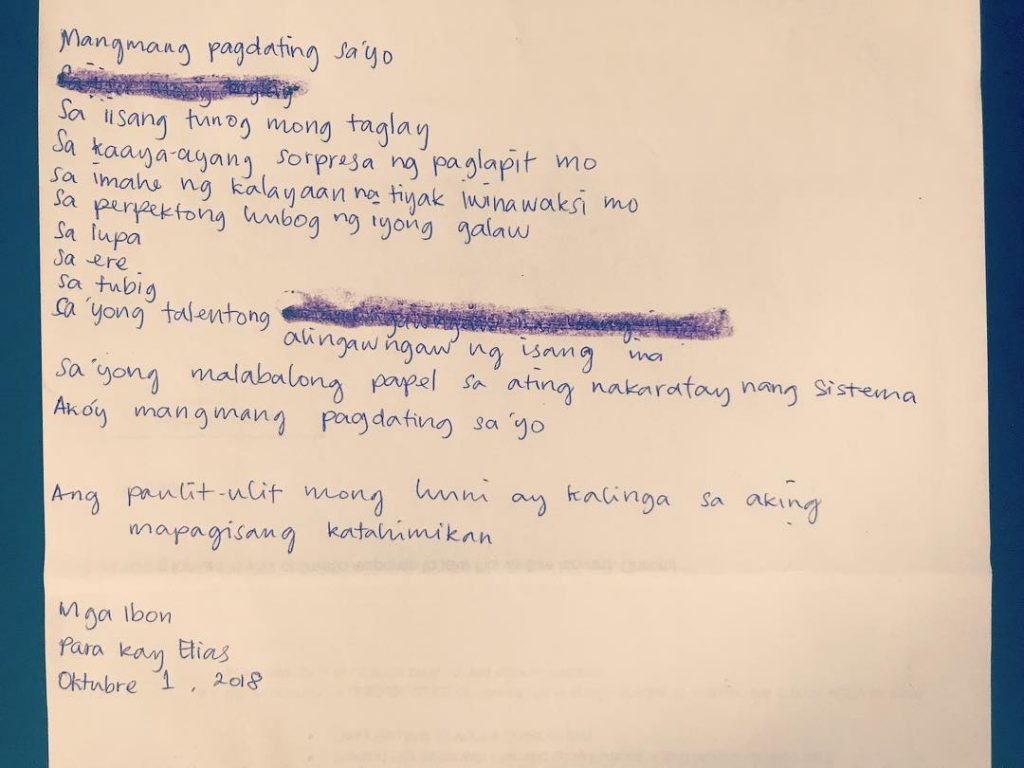 Mangmang pagdating sa'yo
Sa iisang tunog mong taglay
Sa kaaya-ayang sorpresa ng paglapit mo
sa imahe ng kalayaan na tiyak iwinawaksi mo
Sa perpektong hubog ng iyong galaw
Sa lupa
sa ere
sa tubig
sa'yong talentong
alingawngaw ng isang ina
sa'yong malabalong papel sa ating nakaratay nang sistema
Ako'y mangmang pagdating sa'yo
Ang paulit-ulit mong huni ay kalinga sa aking
mapagisang katahimikan
Mga Ibon
Para kay Elias
Oktubre 1, 2018